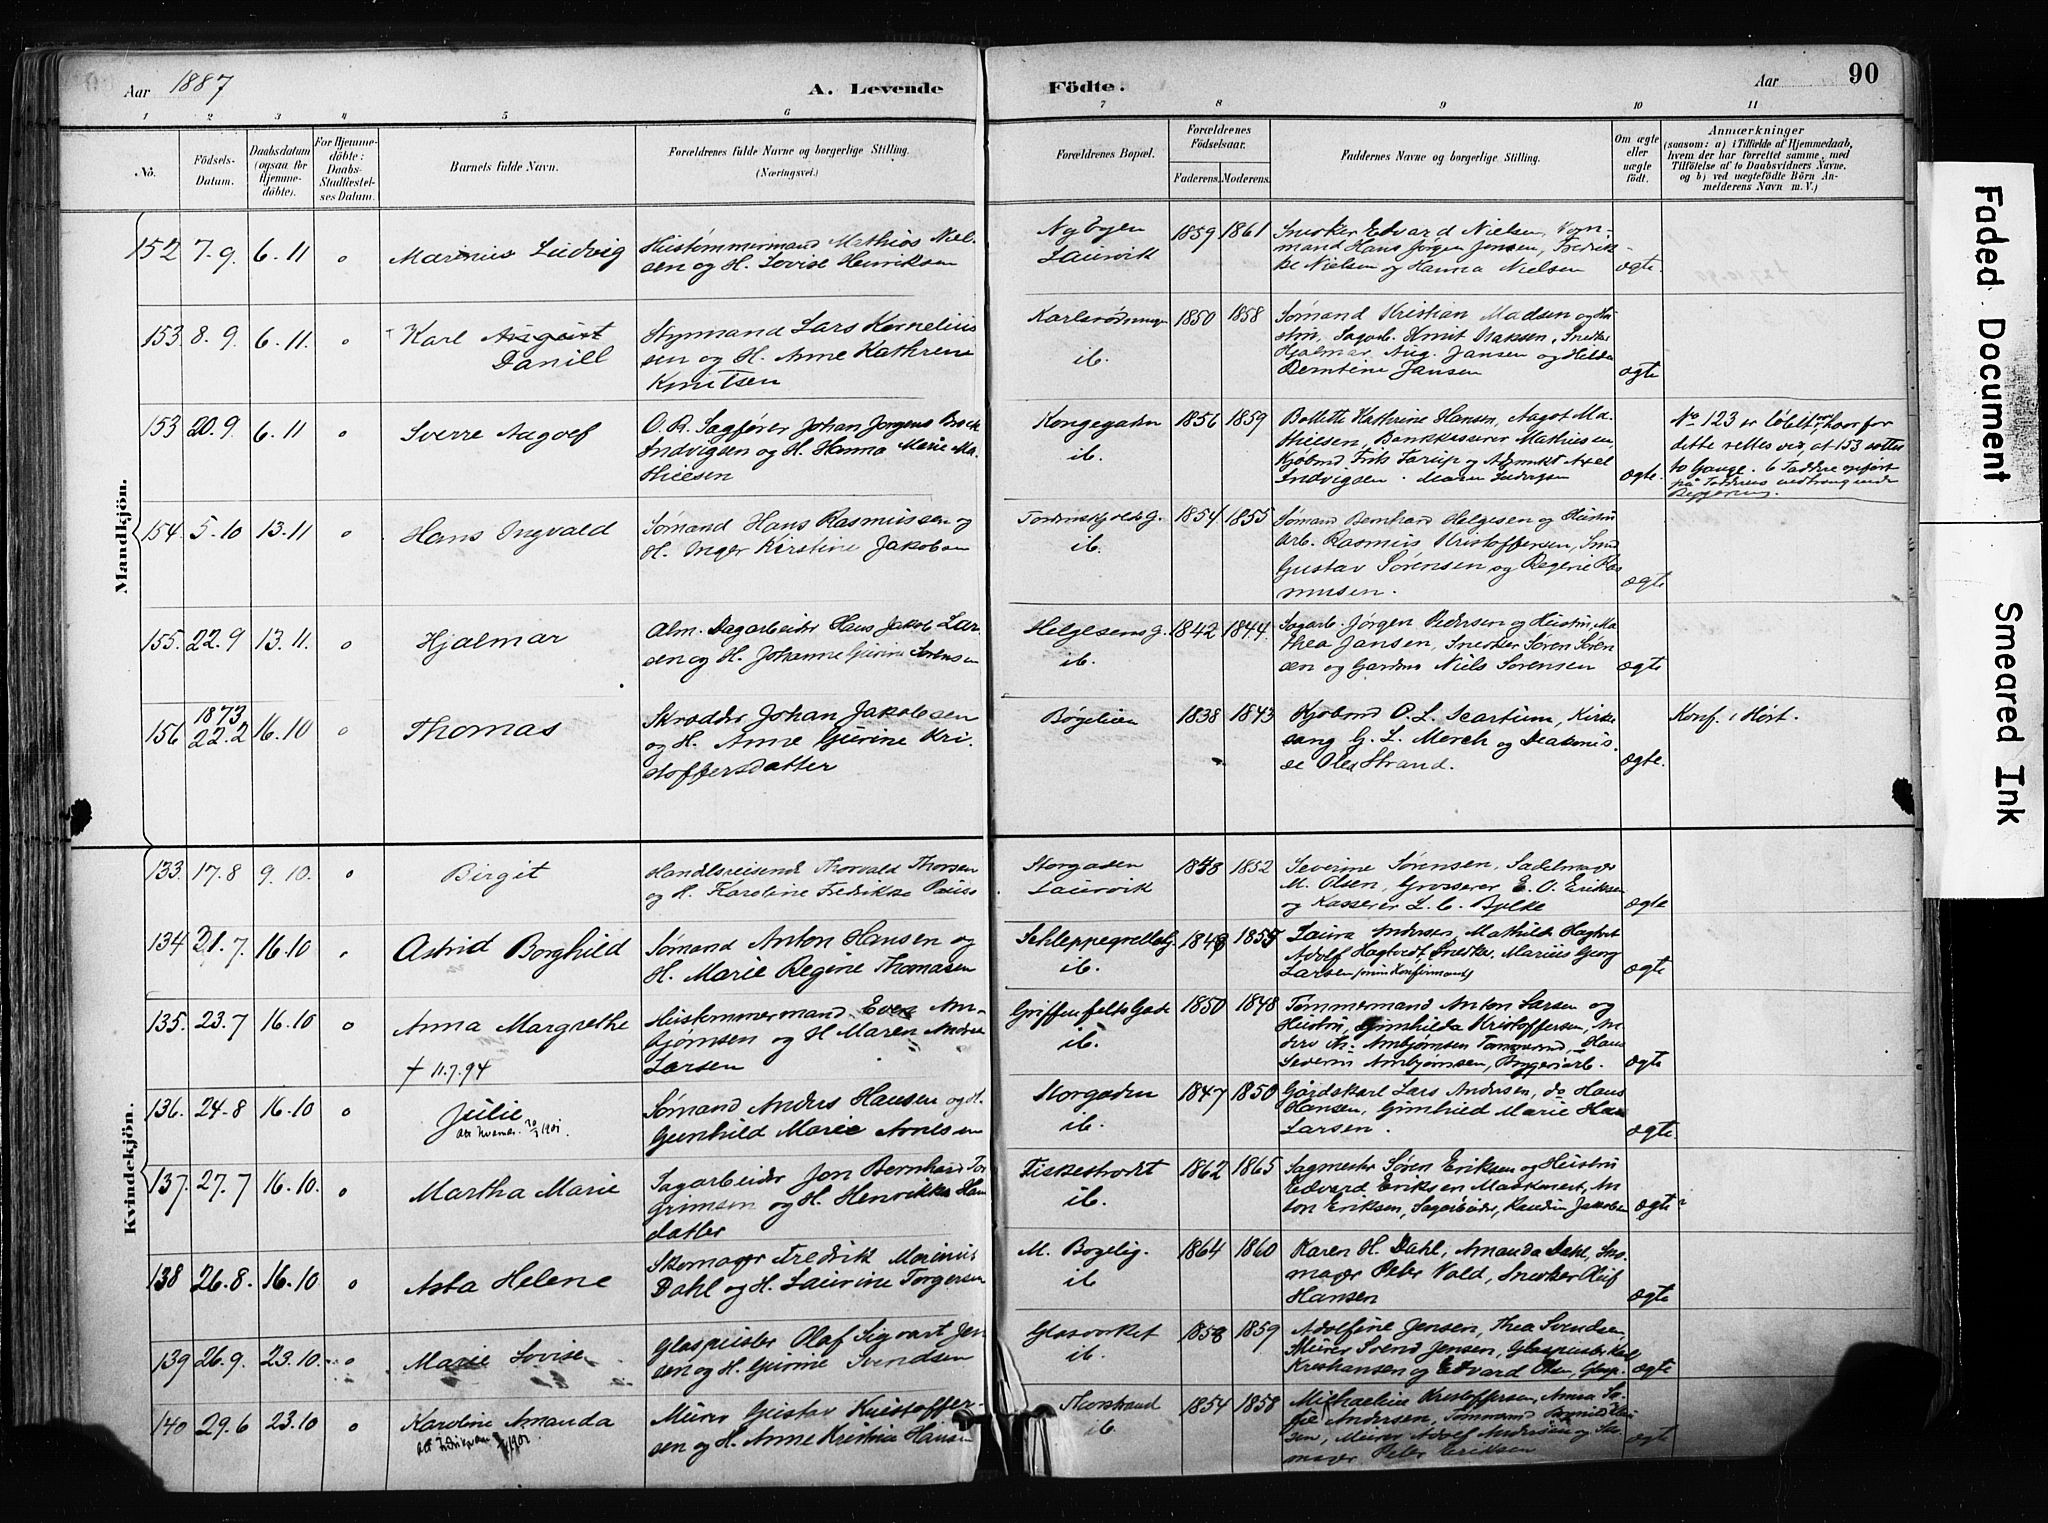 Aar 1887
A. Levende
Födte.
Aar
90
1 2 3 4 5 6 7 8 9 10 11
No.
Födsels-Datum.
Daabsdatum (ogsaa for Hjemmedöbte).
For Hjemmedöbte: Daabs-Stadfæstelses Datum.
Barnets fulde Navn.
Forældrenes fulde Navne og borgerlige Stilling. (Næringsvei.)
Forældrenes Bopæl.
Forældrenes Födselsaar.
Faderens. Moderens.
Faddernes Navne og borgerlige Stilling.
Om ægte eller uægte födt.
Anmærkninger
(saasom: a) i Tilfælde af Hjemmedaab, hvem der har forrettet samme, med Tilföielse af to Daabsvidners Navne. og b) ved uægtefödte Börn Anmelderens Navn m. V.)
Mandkjön.
152 7.9. 6.11 o Marinius Ludvig
Hustømmermand Mathias Nielsen og H. Lovise Henriksen
Nybyen Laurvik 1859 1861
Snedker Edvard Nielsen, Hans Jørgen Jensen, Fredrikke Nielsen og Hanna Nielsen ægte.
153 8.9. 6.11. o Karl Asgaut Danill
Styrmand Lars Korneliussen og H. Anne Kathrene Knutsen
ib. 1850 1858
Sømand Kristian Madsen og Hustru, Sagarb. Knut Isaksen, Snedker Hjalmar Aug. Jansen og Hilda Berntine Jansen ægte
153 20.9. 6.11 o Sverre Aagolf
O.R. Sagfører Johan Jørgens Brock Indvigsen og H. Hanna Marie Mathiesen
Kongegaden ib. 1856 1859
Bollette Kathrine Hansen, Aagot Mathiesen, Bankkasserer Mathiesen Kjøbmd Frits Tarup og Axel Indvigsen. Maren Indvigsen ægte.
No 123 er løbet over, hvorfor dette rettes ved, at 153 sættes to Gange. 6 Faddere opført på Faddernes
154. 5.10 13.11 o Hans Ingvald
Sømand Hans Rasmussen og H. Inger Kirstine Jakobsen
Tordenskjolds G. ib. 1854 1855
Sømand Bernhard Helgesen og Hustru Arb. Rasmus Kristoffersen, Smed Gustav Sørensen og Regine Rasmussen. ægte
155. 22.9 13.11. o Hjalmar
Alm. Dagarbeider Hans Jakob Larsen og H. Johanne Gurine Sørensen
Helgesens g. ib. 1842 1844.
Sagarb. Jørgen Pedersen og Hustru, Mathea Jansen, Snedker Søren Sørensen og Gardner Niels Sørensen ægte
156 1873 22.2 16.10 o Thomas
Skrædder Johan Jakobsen og H. Anne Gurine Kristoffersdatter
Bøgelien 1838 1843
Kjøbmd O. L. Seartum, Kirkesang. G. L. Merch og Diakonisse Olea Strand. ægte.
Konf. i Høst.
Kvindekjön.
133. 17.8 9.10. o Birgit
Handelsreisende Thorvald Thorsen og H. Karoline Fredrikke Pauss
Storgaden Laurvik 1848 1852
Severine Sørensen, Sadelmager M. Olsen, Grosserer E. O. Eriksen og Kasserer L. C. Bylke ægte
134 21.7. 16.10 Astrid Borghild
Sømand Anton Hansen og H. Marie Regine Thomasen
Schleppegrellsg. ib. 1848 1855
Laura Andersen, Mathilde Hagtvet Adolf Hagtvedt Snedker, Marius Georg Larsen (min Konfirmand) ægte
135. 23.7 16.10 o Anna Margrethe † 11.7.94
Hustømmermand Even Arnbjørnsen og H Maren Andrea Larsen
Griffenfelts Gade ib. 1850 1848
Tømmermand Anton Larsen og Hustru, Gunhilda Kristoffersen, Arnbjørnsen Tømmermd, Hans Severin Arnbjørnsen, ægte
136. 24.8 16.10 o Julie
Sømand Anders Hansen og H. Gunhild Marie Arnesen
Storgaden ib. 1847 1850
Gårdskarl Lars Andersen, do Hans Hansen, Gunhild Marie Larsen. ægte.
137. 27.7 16.10. o Martha Marie
Sagarbeider Jon Bernhard Torgrimsen og H. Henrikke Hansdatter
Fiskestrædet ib. 1862 1865
Sagmester Søren Eriksen og Hustru Edvard Eriksen Maskinert, Anton Eriksen, Sagarbeider, Jakobsen ægte
138 26.8. 16.10 o Asta Helene
Skomager Fredrik Marinius Dahl og H. Laurine Torgersen
M. Bøgelig. ib 1864 1860
Karen H. Dahl, Amanda Dahl, Skomager Peter Vold, Snedker Oluf Hansen ægte
139 26.9. 23.10. o Marie Lovise
Glaspuster Olaf Sigvart Jensen og H. Gurine Svendsen
Glasværket ib. 1858 1859
Adolfine Jensen, Thea Svendsen, Murer Svend Jensen, Glaspuster Karl Kristiansen og Edvard Olsen, Glasp. ægte
140 29.6 23.10 o Karoline Amanda
Murer Gustav Kristoffersen og H. Anne Kristine Hansen
Thorstrand ib. 1854 1858
Michaeline Kristoffersen, Anna Sofie Andersen, Murer Adolf Andersen og Skomager Peter Eriksen ægte
Faded Document
Smeared Ink